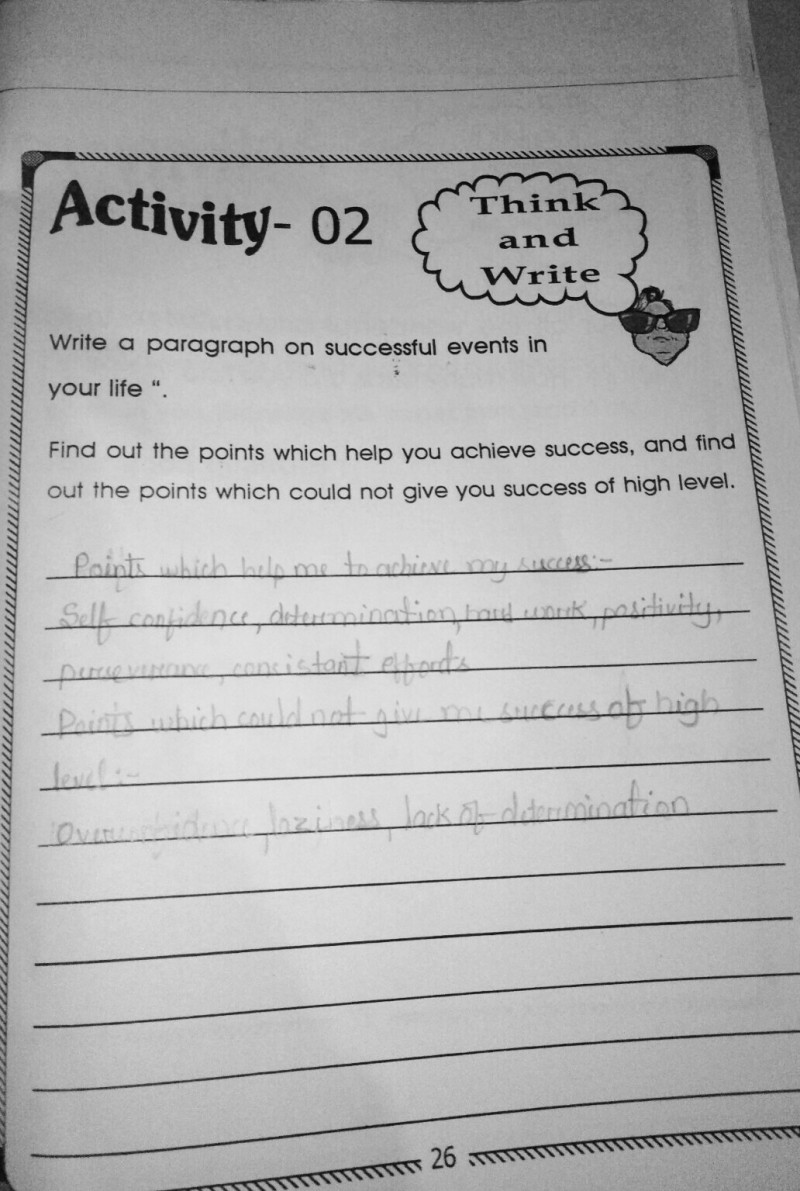 Activity- 02
Think
and
Write
Write a paragraph on successful events in
your life “.
Find out the points which help you achieve success, and find
out the points which could not give you success of high level.
Points which help me to achieve my success:-
Self confidence, determination, hard work, positivity,
perseverance, consistant efforts
Points which could not give me success of high
level:-
Overconfidence, laziness, lack of determination
26